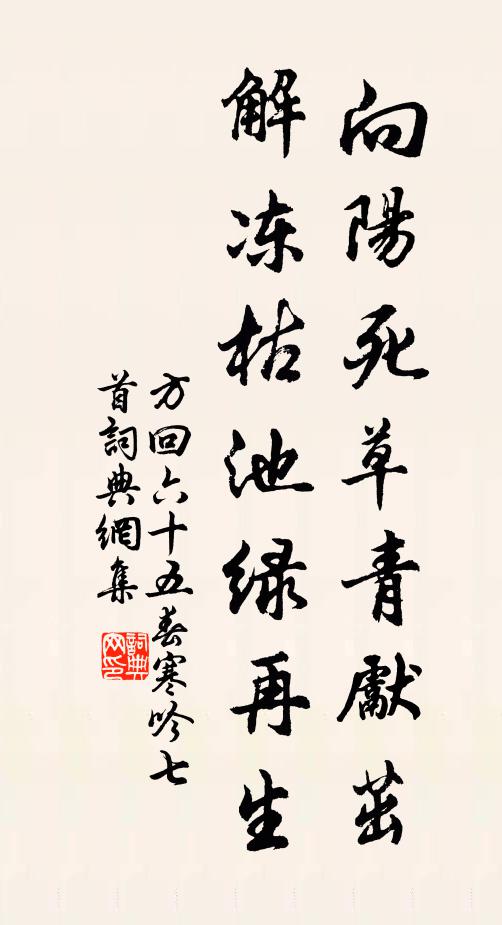 向陽死草青獻茁
解冻枯池绿再生
方回六十五春寒吟七
首詞典網集
詞典網印